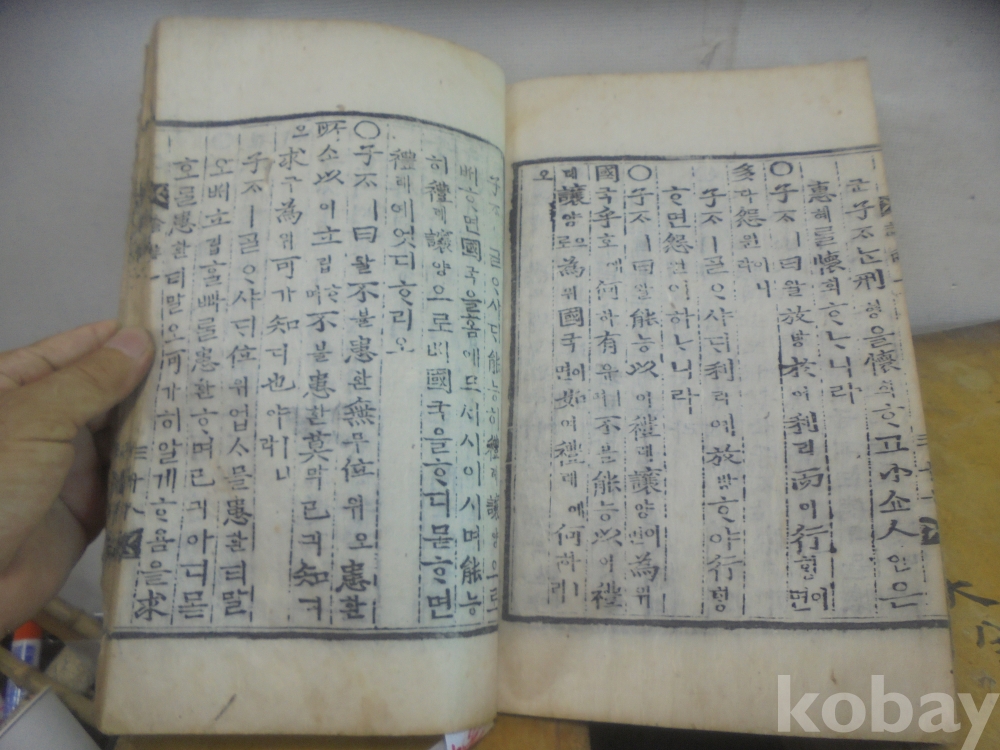 군子ᄌᆞᄂᆞᆫ刑형을懷회ᄒᆞ고小쇼人인은
惠혜를懷회ᄒᆞᄂᆞ니라
○子ᄌᆞㅣ曰왈放방於어利리而이行ᄒᆡᆼ이면
多다怨원이니라
子ᄌᆞㅣᄀᆞᆯᄋᆞ샤ᄃᆡ利리예放방ᄒᆞ야行ᄒᆡᆼ
ᄒᆞ면怨원이하ᄂᆞ니라
○子ᄌᆞㅣ曰왈能능以이禮례讓양이면為위
國국乎호애何하有유ㅣ며不블能능以이禮
례讓양으로為위國국이면如여禮례예何하리
오
子ᄌᆞㅣᄀᆞᆯᄋᆞ샤ᄃᆡ能능히禮례讓양으로
ᄡᅥᄒᆞ면國국을홈애므서시이시며能능
히禮례讓양으로ᄡᅥ國국을ᄒᆞ디몯ᄒᆞ면
禮례예엇디ᄒᆞ리오
○子ᄌᆞㅣ曰왈不블患환無무位위오患환
所소以이立립ᄒᆞ며不블患환莫막己긔知디
오求구為위可가知디也야ㅣ니라
子ᄌᆞㅣᄀᆞᆯᄋᆞ샤ᄃᆡ位위업ᄉᆞᄆᆞᆯ患환티말
오ᄡᅥ立립홀빠를患환ᄒᆞ며己긔아디몯
호ᄆᆞᆯ患환티말오可가히알게홈을求
kobay